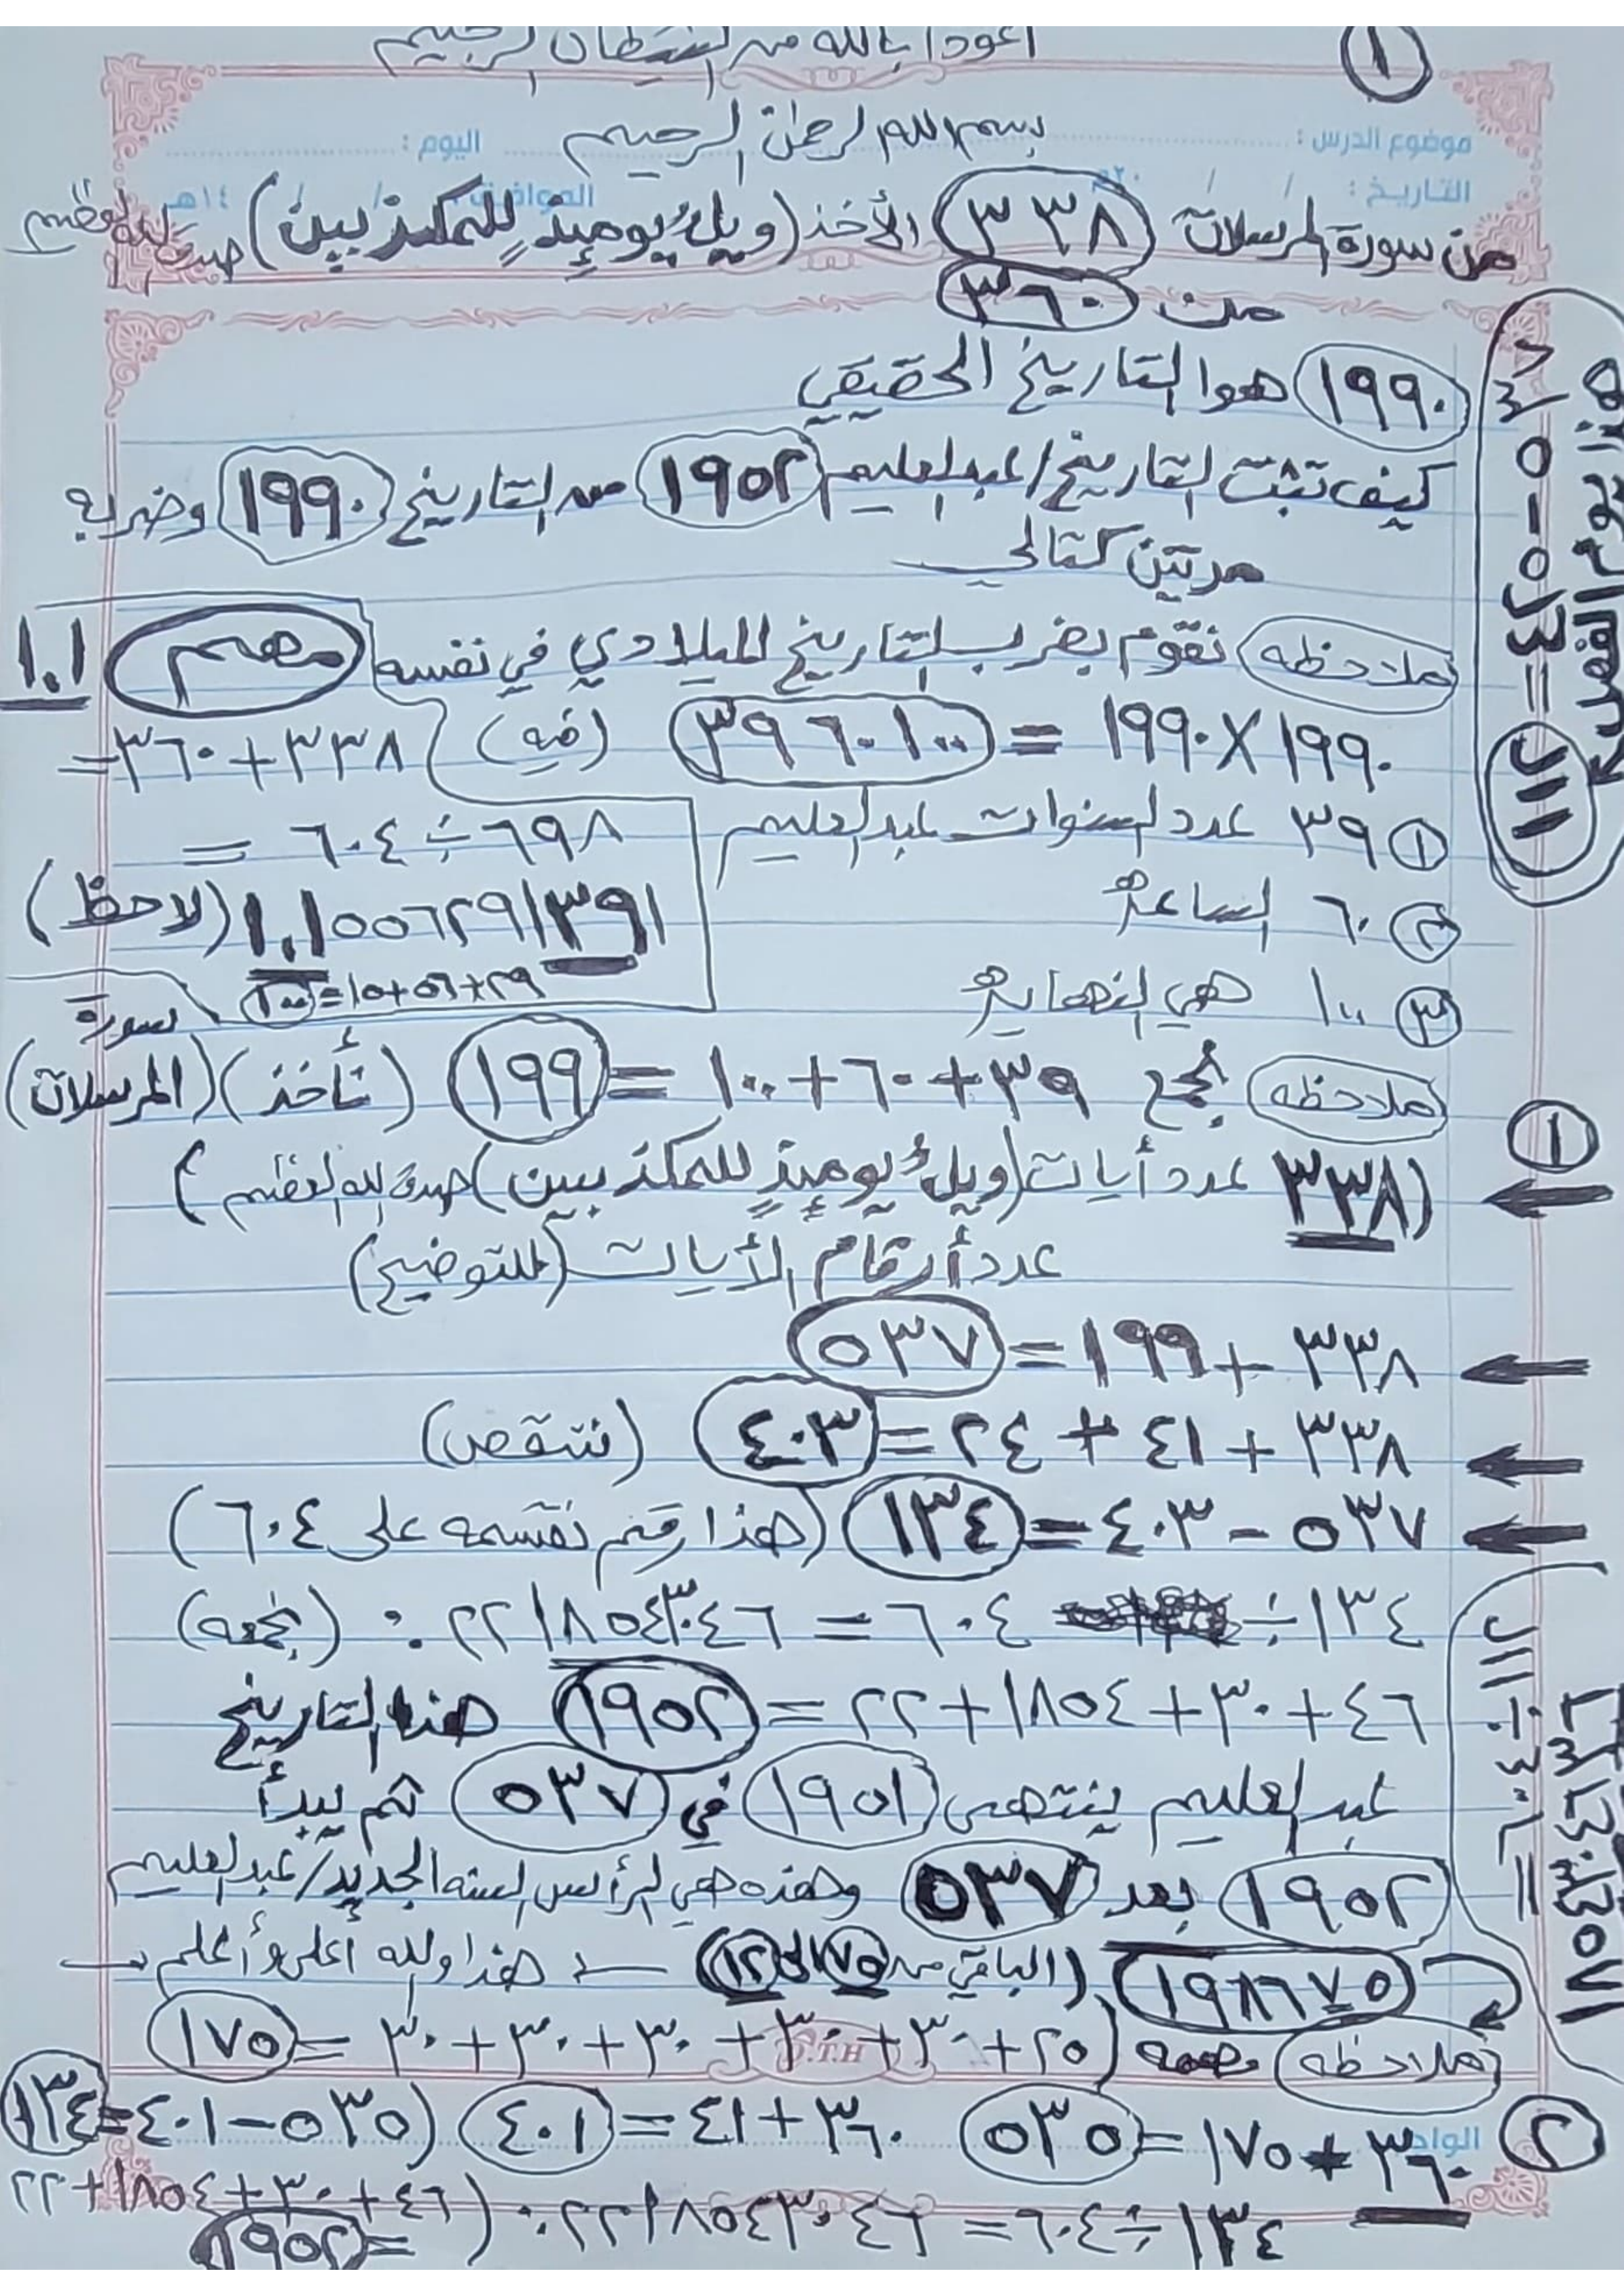 ١
أعوذ بالله من الشيطان الرجيم
بسم الله الرحمن الرحيم
موضوع الدرس : اليوم :
التاريخ : / / ٢٠م الموافق : / / ١٤هـ
من سورة المرسلات ٣٣٨ الأخذ (ويلٌ يومئذٍ للمكذبين) صدق الله العظيم
من ٣٦٠
١٩٩٠ هوا التاريخ الحقيقي
كيف تثبت التاريخ / عبد العليم ١٩٥٢ من التاريخ ١٩٩٠ وضربه
مرتين كتالي
ملاحظه نقوم بضرب التاريخ الميلادي في نفسه مهم ١.١
١٩٩٠ X ١٩٩٠ = ٣٩٦٠١٠٠ (فيه) ٣٣٨ + ٣٦٠ =
① ٣٩ عدد السنوات عبد العليم ٦٩٨ ÷ ٦٠٤ =
② ٦٠ الساعة ١.١٥٥٦٢٩١٣٩١ (لاحظ)
٢٩+٥٦+١٥=١٠٠
③ ١٠٠ هي النهاية سورة
ملاحظه نجمع ٣٩ + ٦٠ + ١٠٠ = ١٩٩ (تأخذ) (المرسلات)
①
(٣٣٨ عدد أيات (ويلٌ يومئذٍ للمكذبين) صدق الله العظيم)
عدد أرقام الأيات (للتوضيح)
٣٣٨ + ١٩٩ = ٥٣٧
٣٣٨ + ٤١ + ٢٤ = ٤٠٣ (ننقص)
٥٣٧ - ٤٠٣ = ١٣٤ (هذا رقم نقسمه على ٦٠٤)
١٣٤ ÷ ٦٠٤ = ٠.٢٢١٨٥٤٣٠٤٦ (نجمعه)
٤٦ + ٣٠ + ١٨٥٤ + ٢٢ = ١٩٥٢ هذا التاريخ
عبد العليم ينتهي ١٩٥١ في ٥٣٧ ثم يبدأ
١٩٥٢ بعد ٥٣٧ وهذه هي الرأس السنه الجديد / عبد العليم
١٩٨٦٧٥ (الباقي من ٧٥ الى ١٢) هذا والله أعلى وأعلم
ملاحظه مهمه (٢٥ + ٣٠ + ٣٠ + ٣٠ + ٣٠ + ٣٠ = ١٧٥
② ٣٦٠ + ١٧٥ = ٥٣٥ ٣٦٠ + ٤١ = ٤٠١ (٥٣٥ - ٤٠١ = ١٣٤
الواجب
١٣٤ ÷ ٦٠٤ = ٠.٢٢١٨٥٤٣٠٤٦ (٤٦ + ٣٠ + ١٨٥٤ + ٢٢
= ١٩٥٢